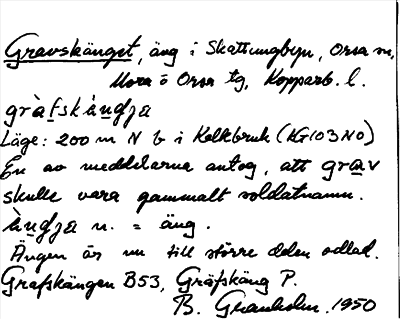 Gravskänget, äng i Skattungbyn, Orsa sn,
Mora o Orsa tg, Kopparb. l.
gràfskàngja
Läge: 200 m N b i Kalkbruk (KG103NO)
En av meddelarna antog, att grav
skulle vara gammalt soldatnamn.
àngja n. = äng.
Ängen är nu till större delen odlad.
Grafskängen B53, Gräfskäng P.
B. Granholm. 1950